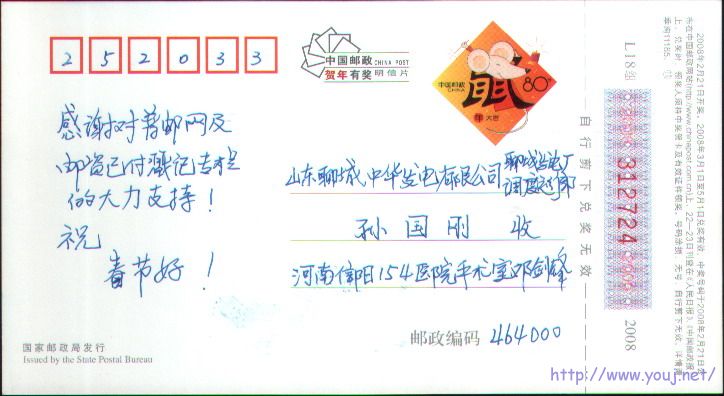 252033
中国邮政
CHINA POST
贺年有奖
明信片
中国邮政
CHINA
80分
鼠
年大吉
感谢您对普邮网及
邮资已付戳记专栏
的大力支持！
祝
春节好！
山东聊城中华发电有限公司
聊城发电厂
孙国刚 收
河南信阳154医院手术室邓剑锋
邮政编码 464000
国家邮政局发行
Issued by the State Postal Bureau
自行剪下兑奖无效
L 18组
312724
2008
http://www.youj.net/